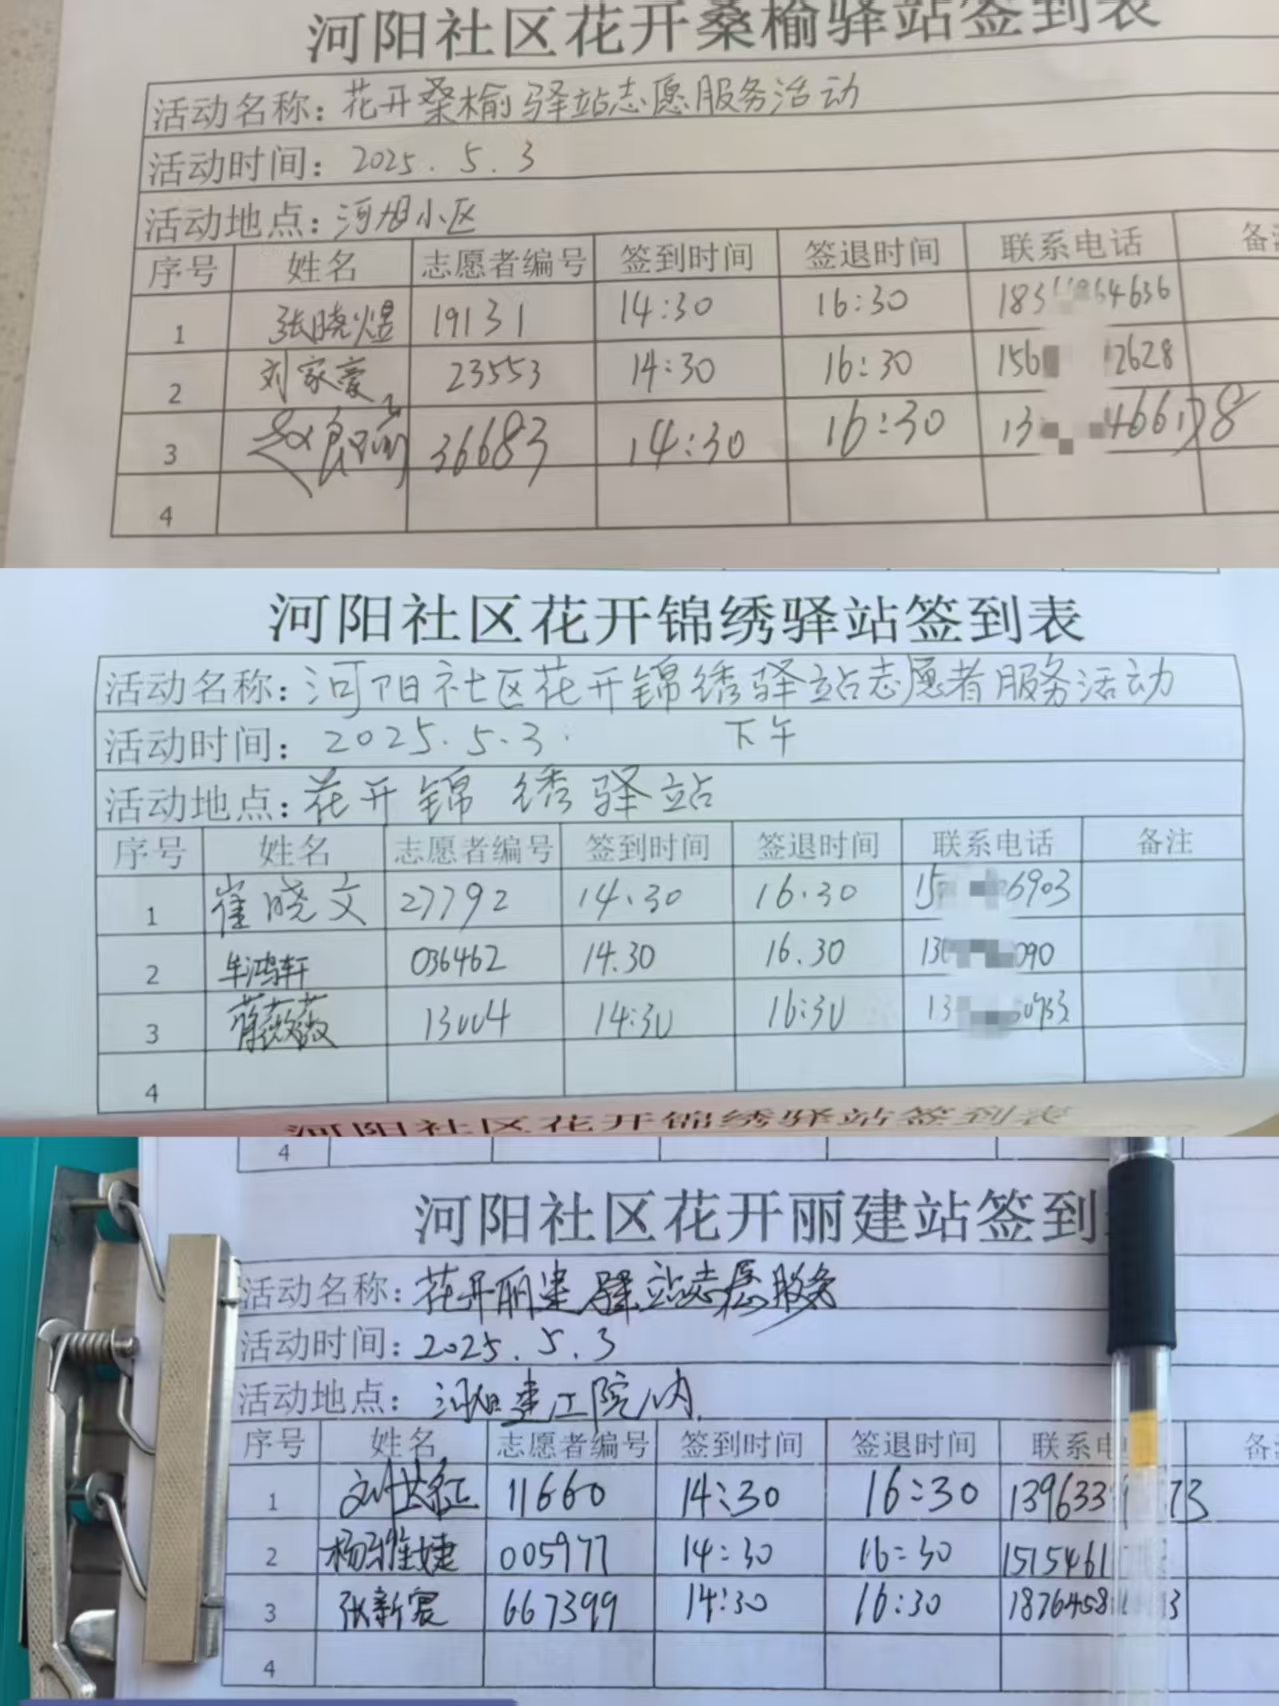 河阳社区花开桑榆驿站签到表
活动名称：花开桑榆驿站志愿服务活动
活动时间：2025.5.3
活动地点：河旭小区
序号 姓名 志愿者编号 签到时间 签退时间 联系电话 备
1 张晓煜 19131 14:30 16:30 183 64636
2 刘家豪 23553 14:30 16:30 156 2628
3 赵 36683 14:30 16:30 13
4
河阳社区花开锦绣驿站签到表
活动名称：河阳社区花开锦绣驿站志愿者服务活动
活动时间：2025.5.3. 下午
活动地点：花开锦绣驿站
序号 姓名 志愿者编号 签到时间 签退时间 联系电话 备注
1 崔晓文 27792 14.30 16.30 15 6903
2 牟鸿轩 036462 14.30 16.30 130 090
3 蒋薇薇 13004 14:30 16:30 13
4
河阳社区花开锦绣驿站签到表
4
河阳社区花开丽建站签到
活动名称：花开丽建驿站志愿服务
活动时间：2025.5.3
活动地点：河阳建工院内
序号 姓名 志愿者编号 签到时间 签退时间 联系电 备
1 刘世红 11660 14:30 16:30 139633 73
2 杨雅婕 005977 14:30 16:30 1515461
3 张新宸 667399 14:30 16:30 1876458 3
4